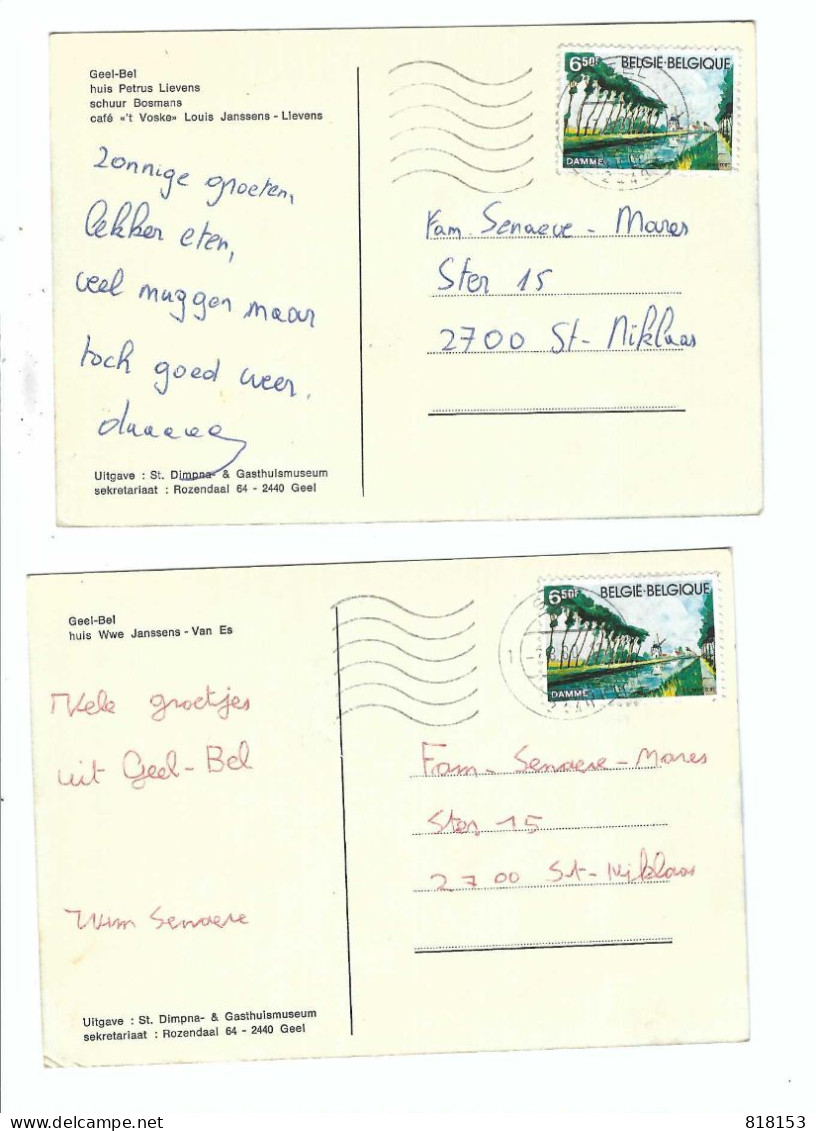 Geel-Bel
huis Petrus Lievens
schuur Bosmans
café «'t Voske» Louis Janssens - Lievens
Zonnige groeten,
lekker eten,
veel muggen maar
toch goed weer.
Uitgave : St. Dimpna- & Gasthuismuseum
sekretariaat : Rozendaal 64 - 2440 Geel
6,50F BELGIË·BELGIQUE
DAMME
2440
Fam. Senaeve - Mares
Ster 15
2700 St-Niklaas
Geel-Bel
huis Wwe Janssens - Van Es
Vele groetjes
uit Geel-Bel
Wim Senaeve
Uitgave : St. Dimpna- & Gasthuismuseum
sekretariaat : Rozendaal 64 - 2440 Geel
6,50F BELGIË·BELGIQUE
DAMME
2440
Fam. Senaeve-Mares
Ster 15
2700 St-Niklaas
818153